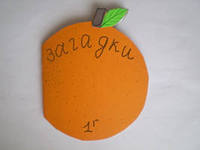 загадки
1г